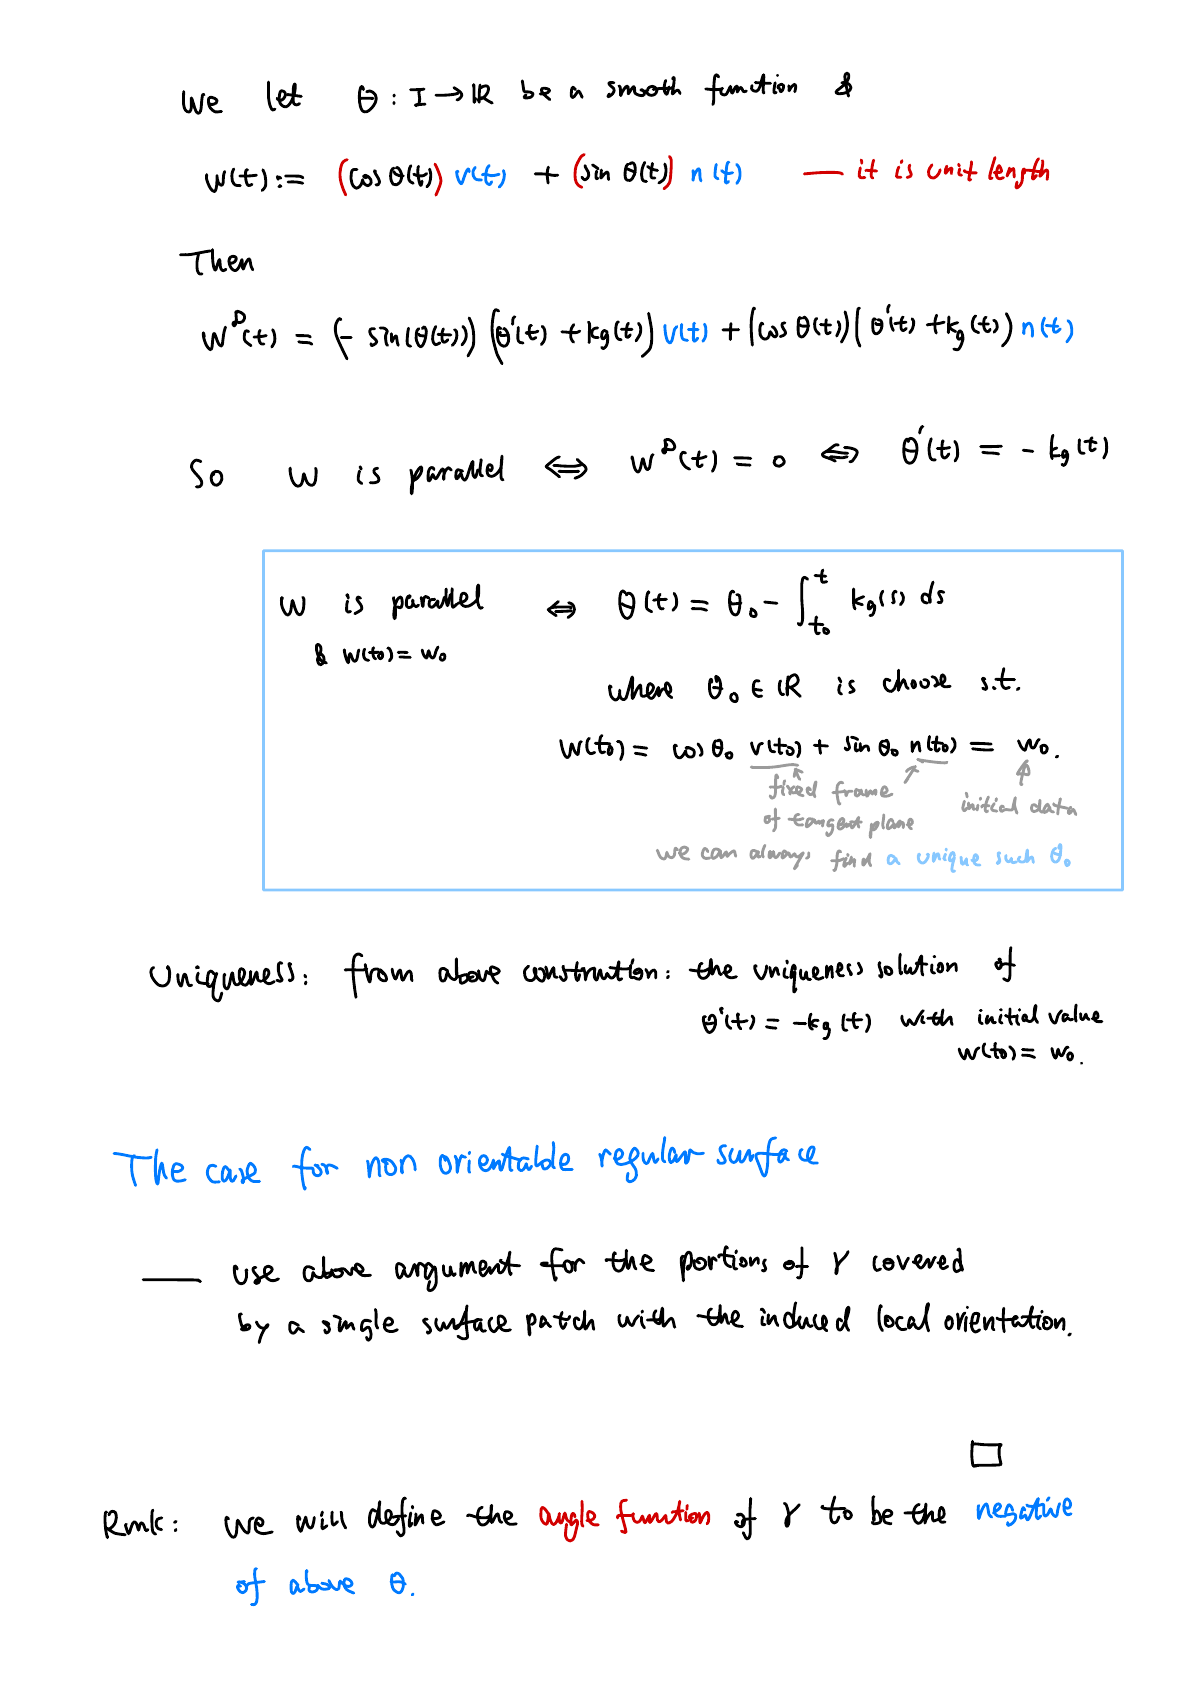 We let θ : I → ℝ be a smooth function &
W(t) := (cos θ(t)) v(t) + (sin θ(t)) n(t) — it is unit length
Then
W^D(t) = (- sin(θ(t))) (θ'(t) + kg(t)) v(t) + (cos θ(t)) (θ'(t) + kg(t)) n(t)
So W is parallel ⇔ W^D(t) = 0 ⇔ θ'(t) = - kg(t)
W is parallel ⇔ θ(t) = θ₀ - ∫_{t₀}^{t} kg(s) ds
& W(t₀) = W₀
where θ₀ ∈ ℝ is choose s.t.
W(t₀) = cos θ₀ v(t₀) + sin θ₀ n(t₀) = W₀.
fixed frame
initial data
of tangent plane
we can always find a unique such θ₀
Uniqueness: from above construction: the uniqueness solution of
θ'(t) = -kg(t) with initial value
W(t₀) = W₀.
The case for non orientable regular surface
— use above argument for the portions of γ covered
by a single surface patch with the induced local orientation.
□
Rmk: We will define the angle function of γ to be the negative
of above θ.